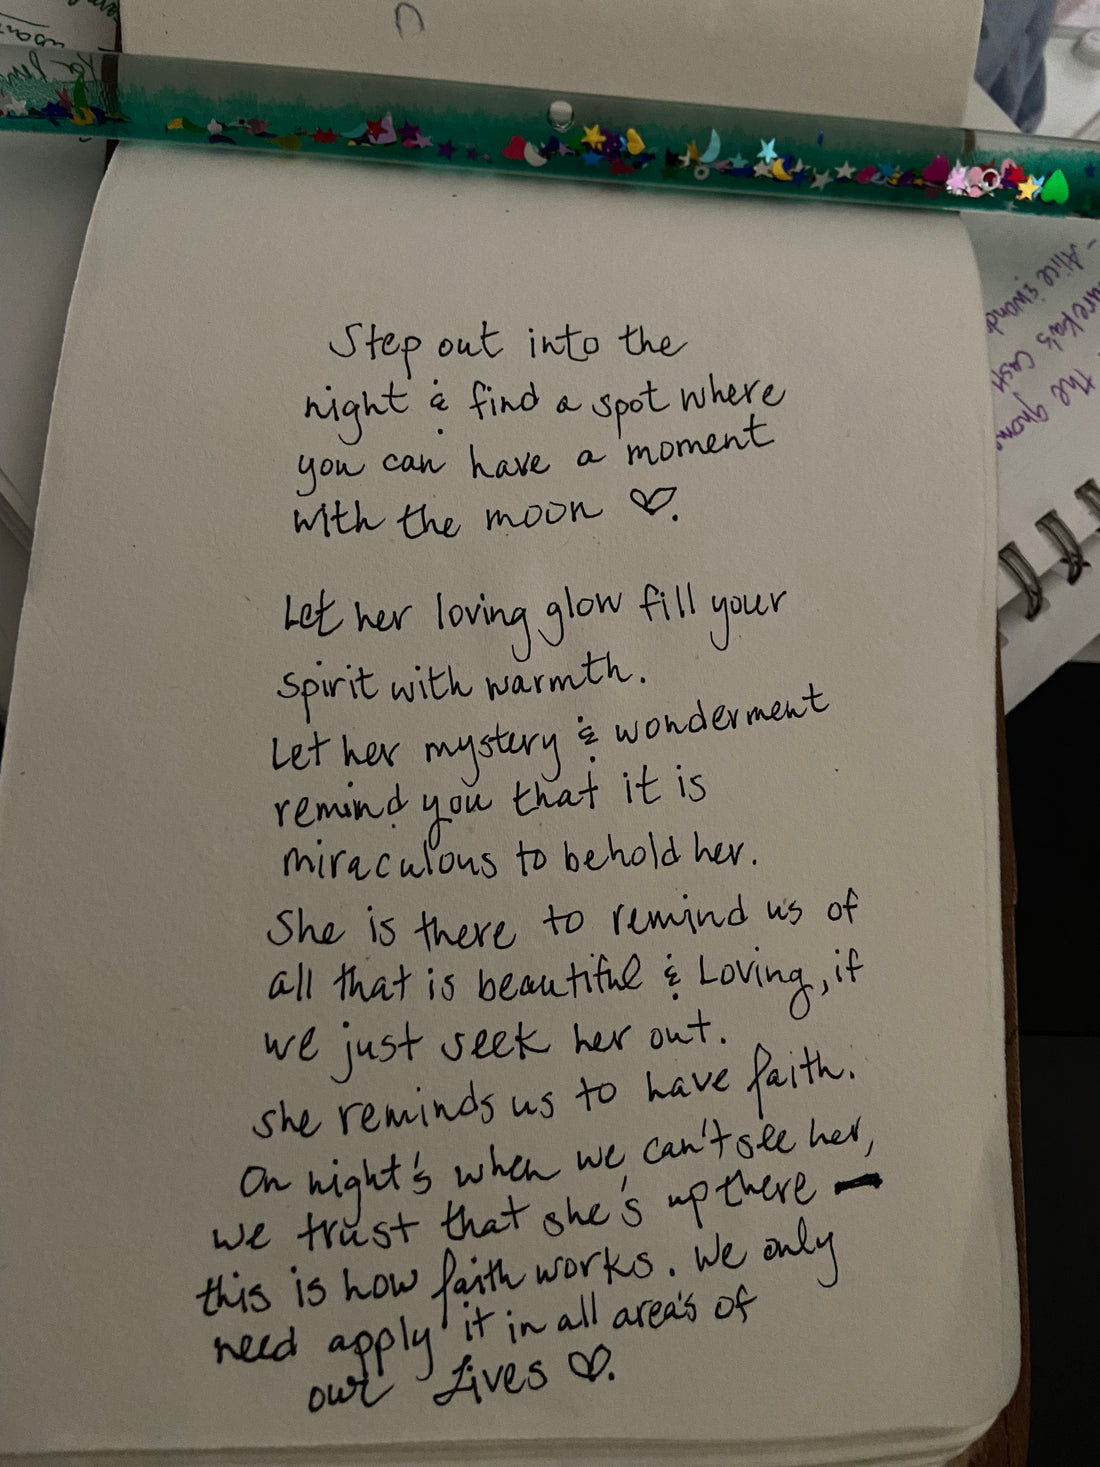 Step out into the
night & find a spot where
you can have a moment
with the moon ♡.
Let her loving glow fill your
spirit with warmth.
Let her mystery & wonderment
remind you that it is
miraculous to behold her.
She is there to remind us of
all that is beautiful & Loving, if
we just seek her out.
she reminds us to have faith.
On night's when we can't see her,
we trust that she's up there —
this is how faith works. We only
need apply it in all area's of
our Lives ♡.
- Alice
cash
the gnome